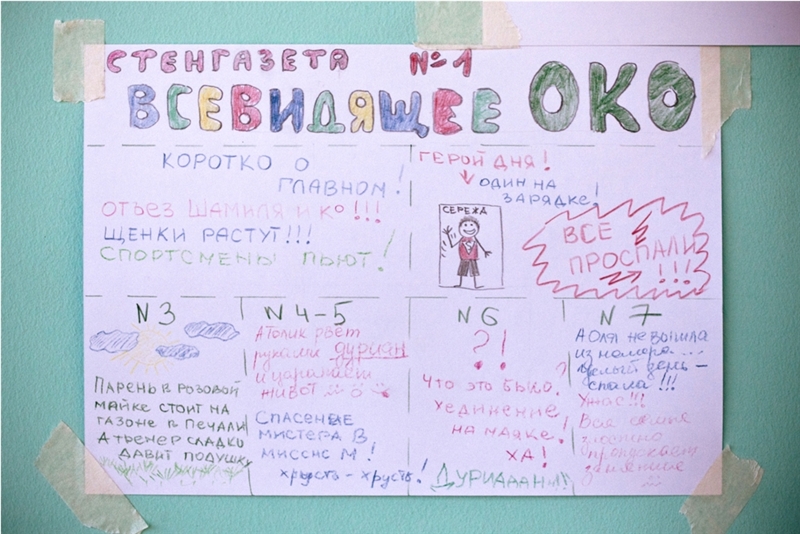 СТЕНГАЗЕТА №1
ВСЕВИДЯЩЕЕ ОКО
КОРОТКО О
ГЛАВНОМ!
ОТЪЕЗ ШАМИЛЯ И КО!!!
ЩЕНКИ РАСТУТ!!!
СПОРТСМЕНЫ ПЬЮТ!
ГЕРОЙ ДНЯ!
ОДИН НА
ЗАРЯДКЕ!
СЕРЕЖА
ВСЕ
ПРОСПАЛИ
!!!
N3
ПАРЕНЬ В РОЗОВОЙ
МАЙКЕ СТОИТ НА
ГАЗОНЕ В ПЕЧАЛИ
А ТРЕНЕР СЛАДКО
ДАВИТ ПОДУШКУ
N4-5
АТОЛИК рвет
руками дуриан
и царапает
живот
СПАСЕНИЕ
МИСТЕРА В
МИССИС М!
хрусть - хрусть!
N6
?!
ЧТО ЭТО БЫЛО?
УЕДИНЕНИЕ
НА МАЯКЕ!
ХА!
ДУРИАААН!!!
N7
А ОЛЯ НЕ ВЫШЛА
ИЗ номера...
целый день -
спала!!!
УЖАС!!!
Вся семья
злостно
пропускает
занятие